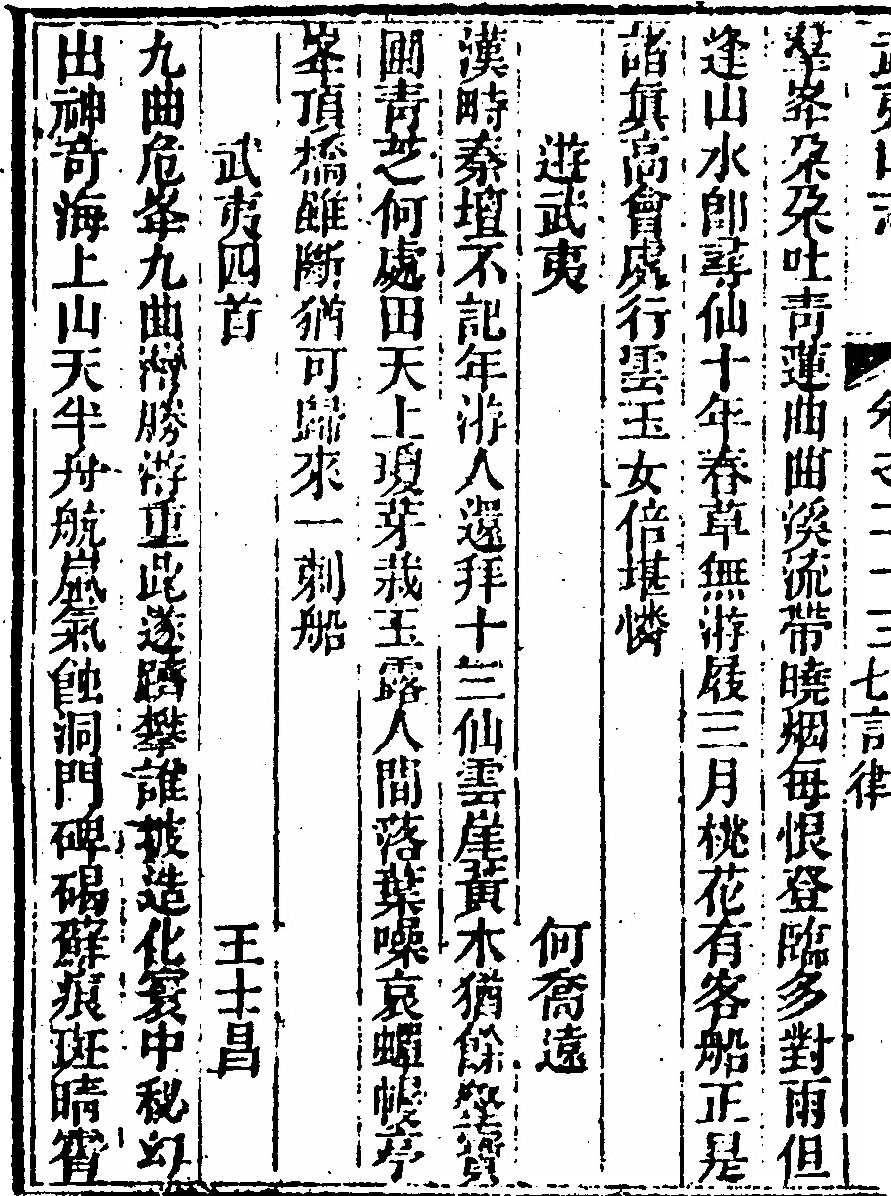 七言律
羣峯朶朶吐青蓮曲曲溪流帶曉烟每恨登臨多對雨但
逢山水卽尋仙十年春草無游屐三月桃花有客船正是
諸眞高會處行雲玉女倍堪憐
遊武夷 何喬遠
漢時秦壇不記年游人還拜十三仙雲崖黃木猶餘
圃青芝何處田天上瓊芽栽玉露人間落葉噪哀蟬幔亭
峯頂橋雖斷猶可歸來一刺船
武夷四首 王士昌
九曲危峯九曲灣勝游重此遂躋攀誰披造化寰中秘幻
出神奇海上山天半舟航嵐氣蝕洞門碑碣蘚痕斑晴霄